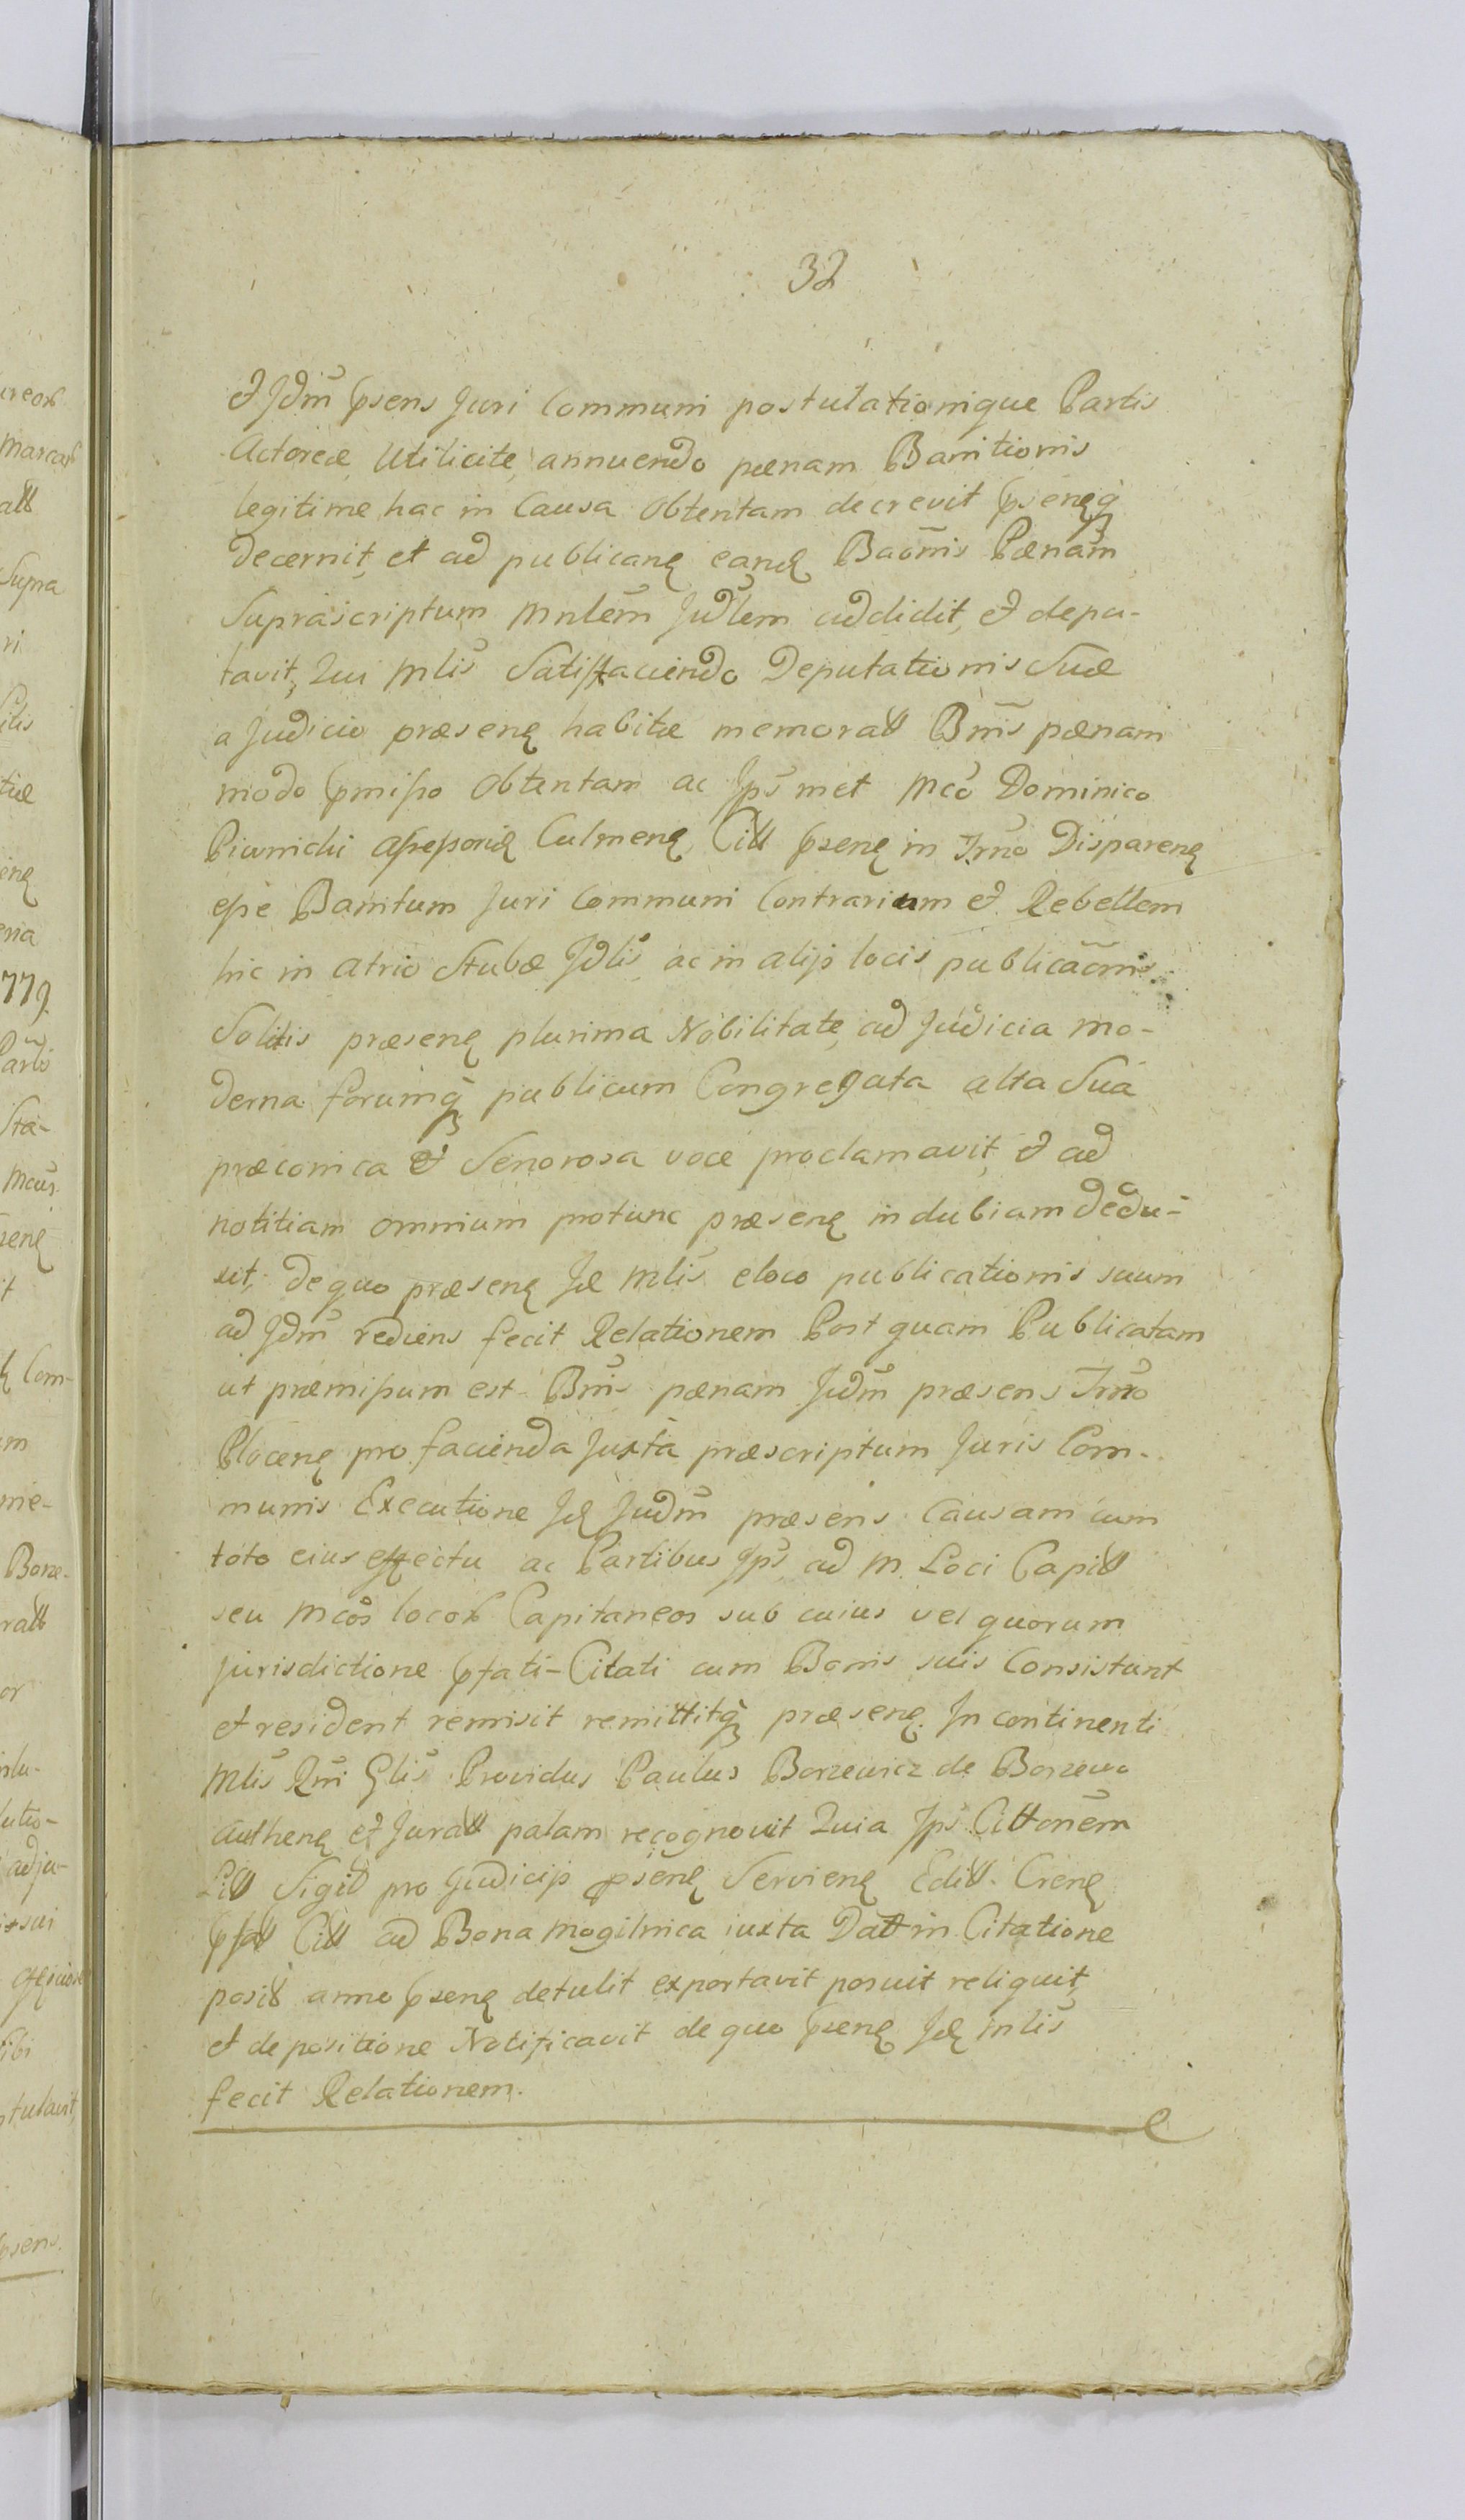 32
et Jdm̃ psens Juri Communi postulationique Partis
Actoreæ Utilicite, annuendo pænam Banitionis
legitime hac in Causa obtentam decrevit pseneq
Decernit, et ad publicanę eandę Baõnis Pænam
Suprascriptum Mnlem Judlem addidit, et depu-
tavit, Qui Mlis Satisfaciendo Deputationis Suæ
a Judicio præsenę habitæ memoratt Bnis pænam
modo pmisso obtentam ac Jps met Mco Dominico
Piwnicki Assessorię Culmenę Citt psenę in Trno Disparenę
esse Banitum Juri Communi Contrarium et Rebellem
hic in atrio Stubæ Jdlis ac in alijs locis publicaõnis
Solitis præsenę plurima Nobilitate, ad Judicia mo-
derna forumq publicum Congregata alta Sua
præconica et Senorosa voce proclamavit, et ad
notitiam omnium protunc præsenę indubiam dedu-
xit, de quo præsenę Jd Mlis eloco publicationis suum
ad Jdm̃ rediens fecit Relationem Post quam Publicatam
ut præmissum est Bnis pænam Judm̃ præsens Trno
Plocenę pro facienda Juxta præscriptum Juris Com-
munis Executione Jdę Judm̃ præsens Causam cum
toto eius effectu ac Partibus Jps ad M. Loci Capitt
seu Mcos locor Capitaneos sub cuius vel quorum
jurisdictione pfati Citati cum Bonis suis Consistunt
et resident remisit remittitq præsenę. In continenti
Mlis Rni Glis Providus Paulus Borzewicz de Borzewo
authenę et Juratt palam recognovit Quia Jps Cittonem
Litt Sigitt pro Judicijs psenę Servienę Editt. Crenę
pfatt Citt ad Bona Mogilnica iuxta Datt in Citatione
posit anno psenę detulit exportavit posuit reliquit,
et de positione Notificavit de quo psenę Jdę Mlis
fecit Relationem.